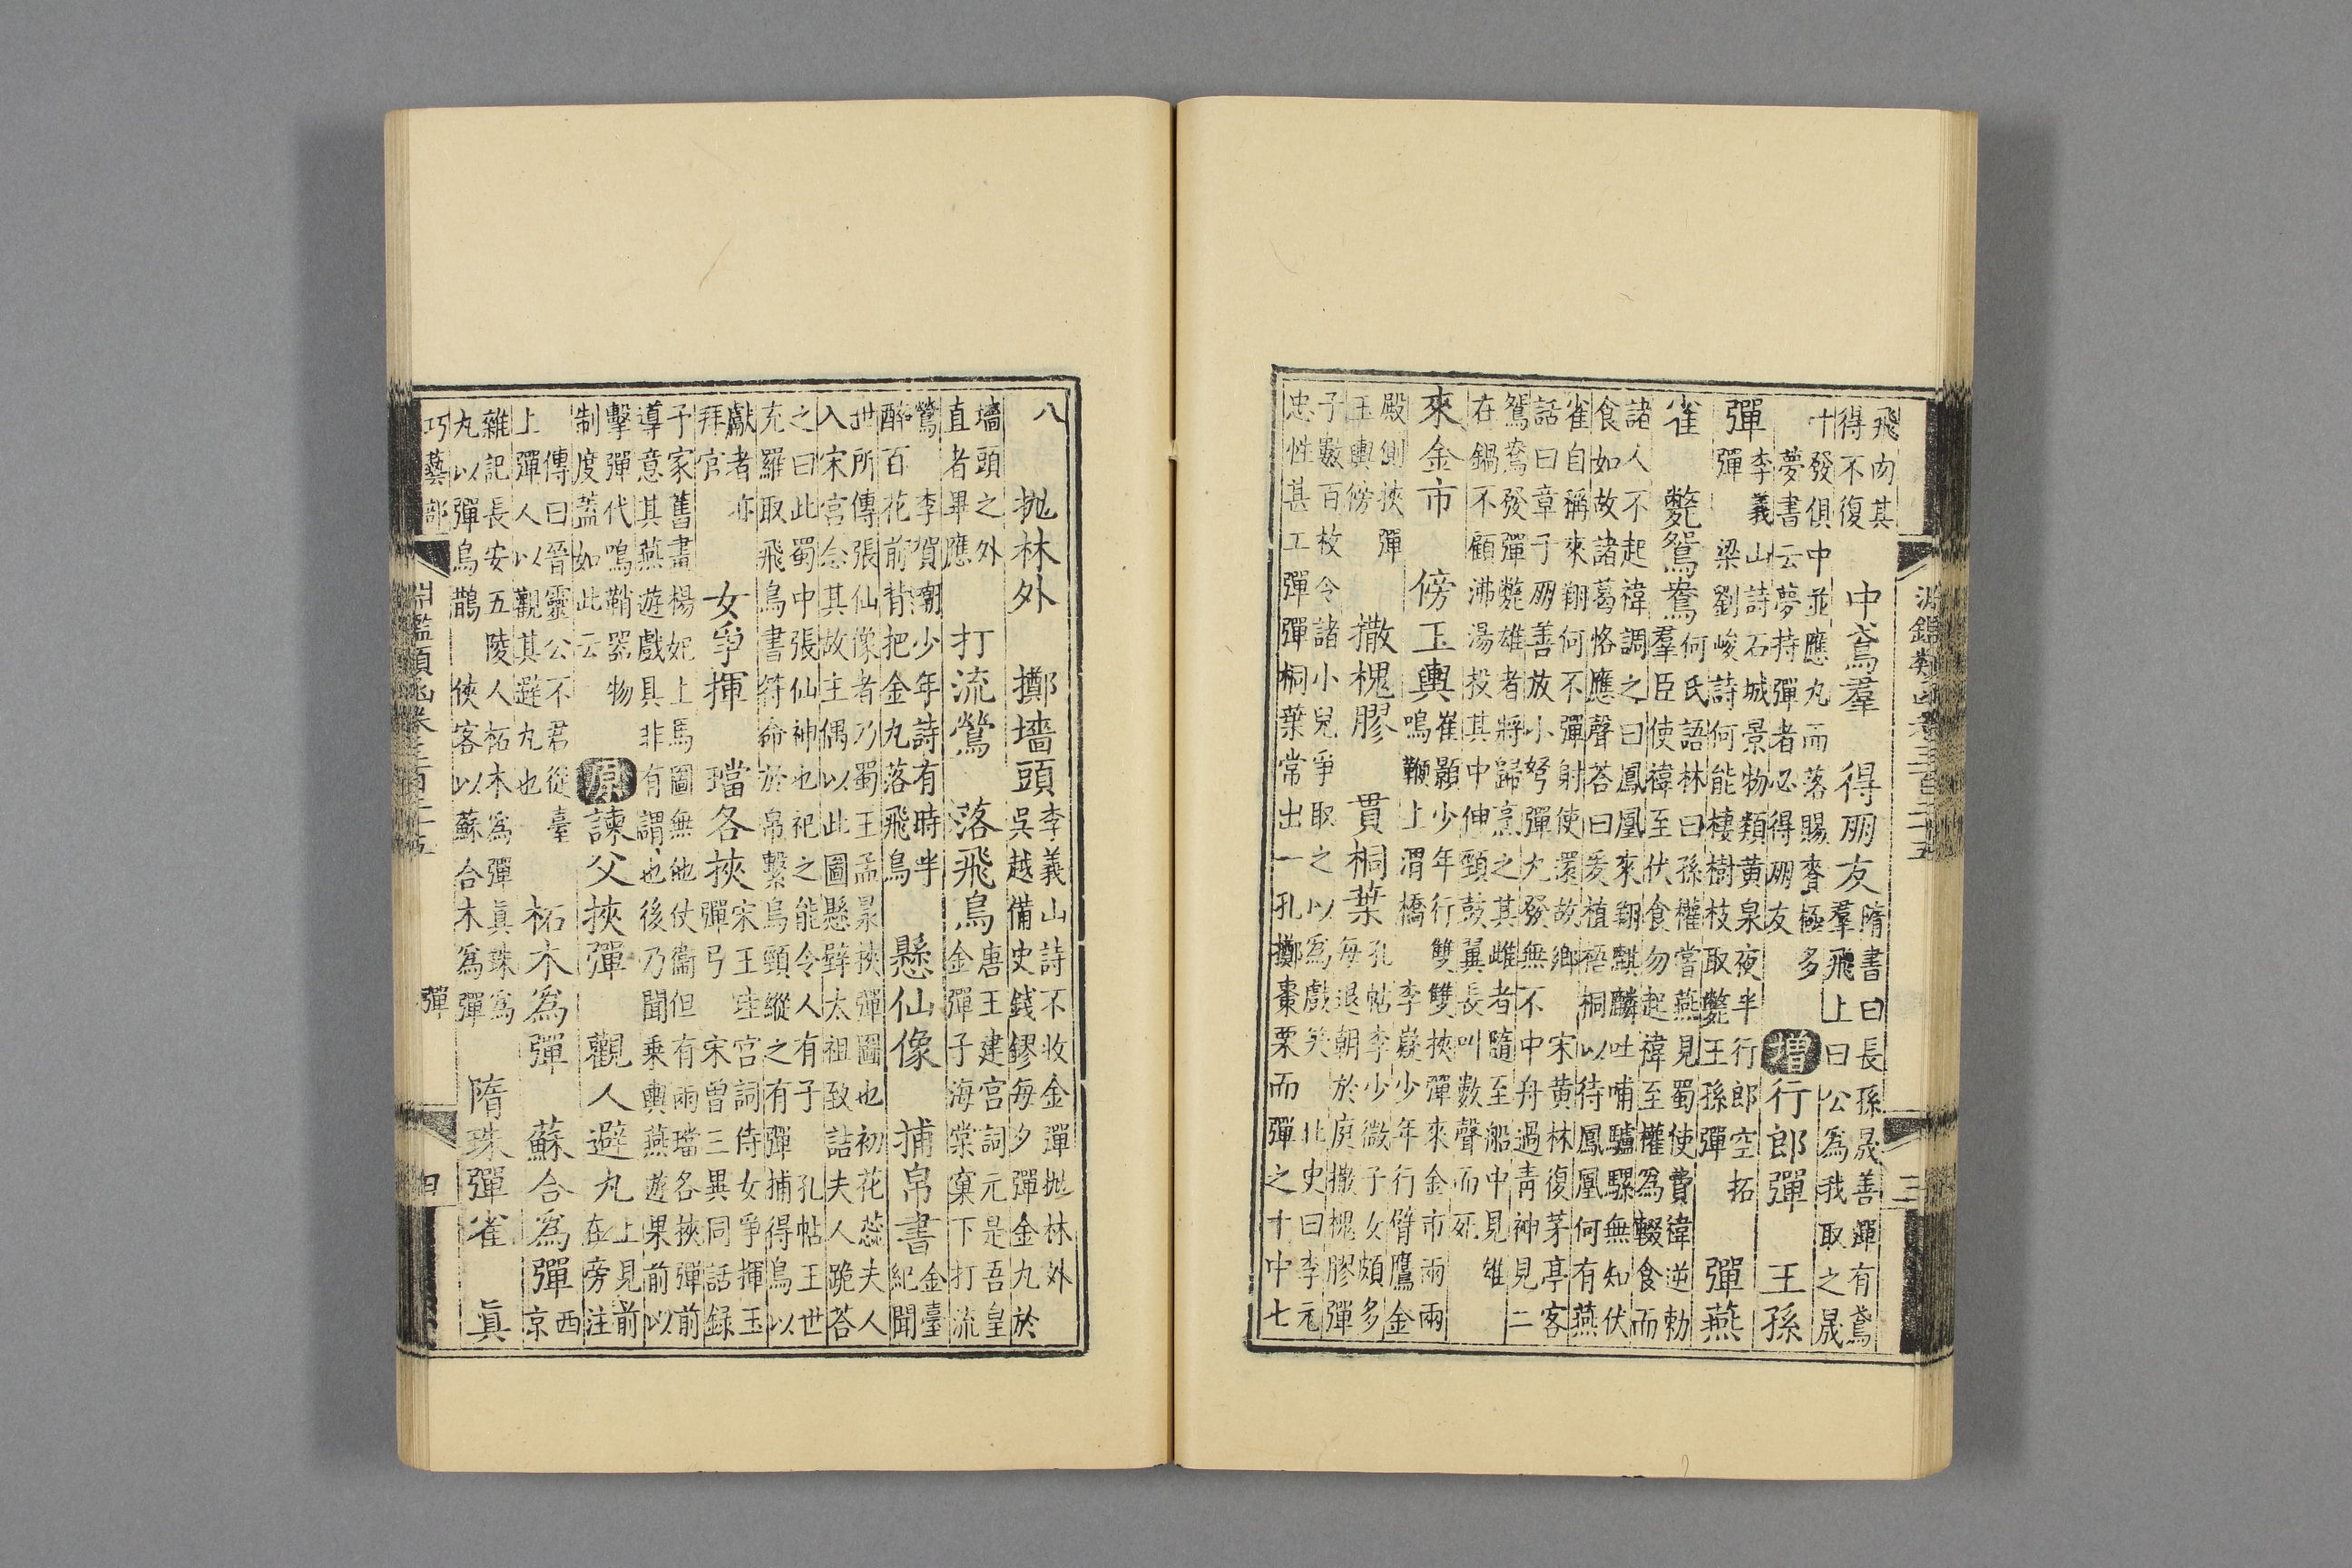 淵鑑類函卷三百二十五 三
飛肉其
得不復
中鳶羣 得朋友
隋書曰長孫晟善彈有鳶
羣飛上曰公爲我取之晟
十發俱中並應丸而落賜賚極多
夢書云夢持彈者必得朋友
增行郎彈 王孫
彈
李義山詩石城景物類黃泉夜半行郎空拓
彈 梁劉峻詩何能棲樹枝取斃王孫彈
彈燕
雀 斃鴛鴦
何氏語林曰孫權嘗燕見蜀使費禕逆勑
羣臣使禕至伏食勿起禕至權爲輟食而
諸人不起禕調之曰鳳凰來翔麒麟吐哺驢騾無知伏
食如故諸葛恪應聲荅曰爰植梧桐以待鳳凰何有燕
雀自稱來翔何不彈射使還故鄉 宋黃林復茅亭客
話曰章子朋善放小弩彈丸發無不中舟過青神見二
鴛鴦發彈斃雄者將歸烹之其雌者隨至船中見雄
在鍋不顧沸湯投其中伸頸鼓翼長叫數聲而死
來金市 傍玉輿
崔顥少年行雙雙挾彈來金市兩兩
鳴鞭上渭橋 李嶷少年行臂鷹金
殿側挾彈
玉輿傍
撒槐膠 貫桐葉
孔帖李少微子女頗多
每退朝於庭撒槐膠彈
子數百枚令諸小兒爭取之以爲戲笑 北史曰李元
忠性甚工彈彈桐葉常出一孔擲棗栗而彈之十中七
八 拋林外 擲墻頭
李義山詩不收金彈拋林外
吳越備史錢鏐每夕彈金丸於
墻頭之外
直者畢應
打流鶯 落飛鳥
唐王建宮詞元是吾皇
金彈子海棠窠下打流
鶯 李賀嘲少年詩有時半
醉百花前背把金丸落飛鳥
懸仙像 捕帛書
金臺
紀聞
世所傳張仙像者乃蜀王孟昶挾彈圖也初花蕊夫人
入宋宮念其故主偶以此圖懸壁太祖致詰夫人跪荅
之曰此蜀中張仙神也祀之能令人有子 孔帖王世
充羅取飛鳥書符命於帛繫鳥頸縱之有彈捕得鳥以
獻者亦
拜官
女爭揮 璫各挾
宋王珪宮詞侍女爭揮玉
彈弓 宋曾三異同話錄
子家舊畫楊妃上馬圖無他仗衞但有兩璫各挾彈前
導意其燕遊戲具非有謂也後乃聞乘輿燕遊果前以
擊彈代鳴鞘器物
制度蓋如此云
原諫父挾彈 觀人避丸
上見前
在旁注
傳曰晉靈公不君從臺
上彈人以觀其避丸也
柘木爲彈 蘇合爲彈
西
京
雜記長安五陵人柘木爲彈眞珠爲
丸以彈鳥鵲 俠客以蘇合木爲彈
隋珠彈雀 眞
巧藝部 淵鑑類函卷三百二十五 彈 四